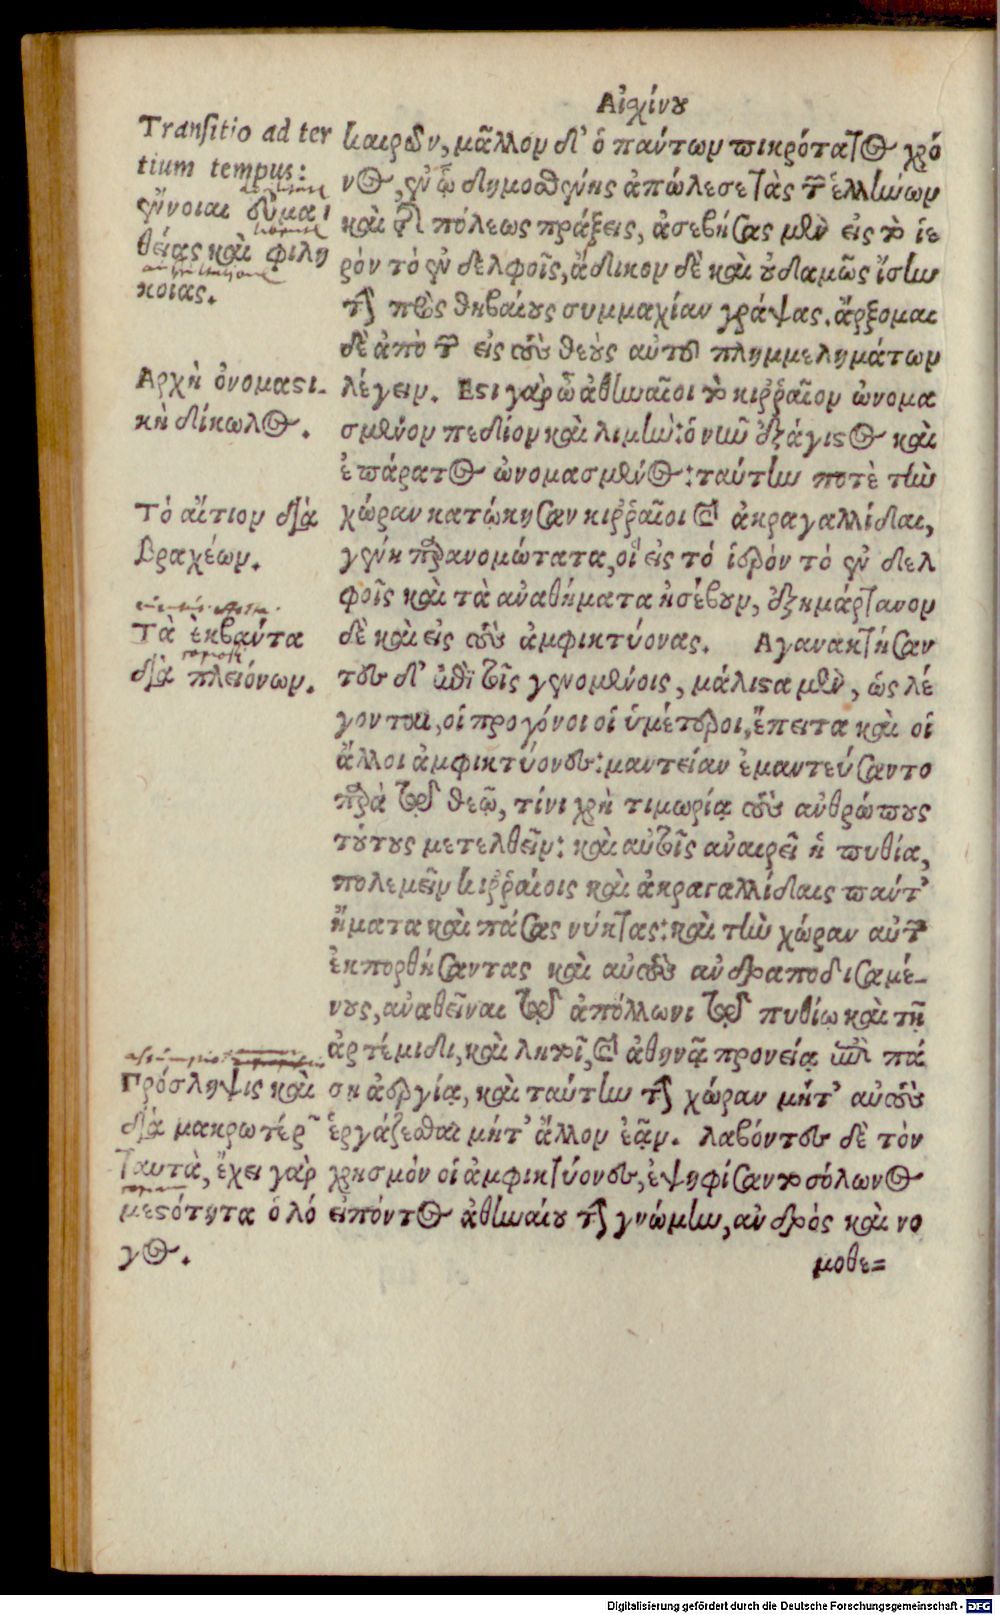 Αἰσχίνου
Transitio ad ter
tium tempus:
ἔννοιαι εὐμα-
θείας καὶ φιλη
κοΐας.
Αρχὴ ὀνομαστι-
κὴ δίκωλος.
Τὸ αἴτιον διὰ
βραχέων.
Τὰ ἐκβάντα
διὰ πλειόνων.
Πρόσληψις καὶ
διὰ μακρωτέρων
ταυτὰ, ἔχει γὰρ
μεστότητα ὁ λό
γος.
καιρῶν, μᾶλλον δ' ὁ πάντων πικρότατος χρό
νος, ἐν ᾧ δημοσθένης ἀπώλεσε τὰς τῶν ἑλλήνων
καὶ τῆς πόλεως πράξεις, ἀσεβήσας μὲν εἰς τὸ ἱε
ρὸν τὸ ἐν δελφοῖς, ἄδικον δὲ καὶ οὐδαμῶς ἴσην
τὴν πρὸς θηβαίους συμμαχίαν γράψας. ἄρξομαι
δὲ ἀπὸ τῶν εἰς τοὺς θεοὺς αὐτοῦ πλημμελημάτων
λέγειν. Εστι γὰρ ὦ ἀθηναῖοι τὸ κιῤῥαῖον ὠνομα
σμένον πεδίον καὶ λιμὴν: ὁ νῦν ἐξάγιστος καὶ
ἐπάρατος ὠνομασμένος: ταύτην ποτὲ τὴν
χώραν κατῴκησαν κιῤῥαῖοι καὶ ἀκραγαλλίδαι,
γένη παρανομώτατα, οἳ εἰς τὸ ἱερὸν τὸ ἐν δελ
φοῖς καὶ τὰ ἀναθήματα ἠσέβουν, ἐξημάρτανον
δὲ καὶ εἰς τοὺς ἀμφικτύονας. Αγανακτήσαν
τες δ' ἐπὶ τοῖς γενομένοις, μάλιστα μὲν, ὡς λέ
γονται, οἱ προγόνοι οἱ ὑμέτεροι, ἔπειτα καὶ οἱ
ἄλλοι ἀμφικτύονες: μαντείαν ἐμαντεύσαντο
παρὰ τῷ θεῷ, τίνι χρὴ τιμωρίᾳ τοὺς ἀνθρώπους
τούτους μετελθεῖν: καὶ αὐτοῖς ἀναιρεῖ ἡ πυθία,
πολεμεῖν κιῤῥαίοις καὶ ἀκραγαλλίδαις πάντ'
ἤματα καὶ πάσας νύκτας: καὶ τὴν χώραν αὐτῶν
ἐκπορθήσαντας καὶ αὐτοὺς ἀνδραποδισαμέ-
νους, ἀναθεῖναι τῷ ἀπόλλωνι τῷ πυθίῳ καὶ τῇ
ἀρτέμιδι, καὶ λητοῖ, καὶ ἀθηνᾷ προνείᾳ ἐπὶ πά
σῃ ἀεργίᾳ, καὶ ταύτην τὴν χώραν μήτ' αὐτοὺς
ἐργάζεσθαι μήτ' ἄλλον ἐᾷν. λαβόντες δὲ τὸν
χρησμὸν οἱ ἀμφικτύονες, ἐψηφίσαντο σόλωνος
εἰπόντος ἀθηναίου τὴν γνώμην, ἀνδρὸς καὶ νο
μοθε=
Digitalisierung gefördert durch die Deutsche Forschungsgemeinschaft - DFG